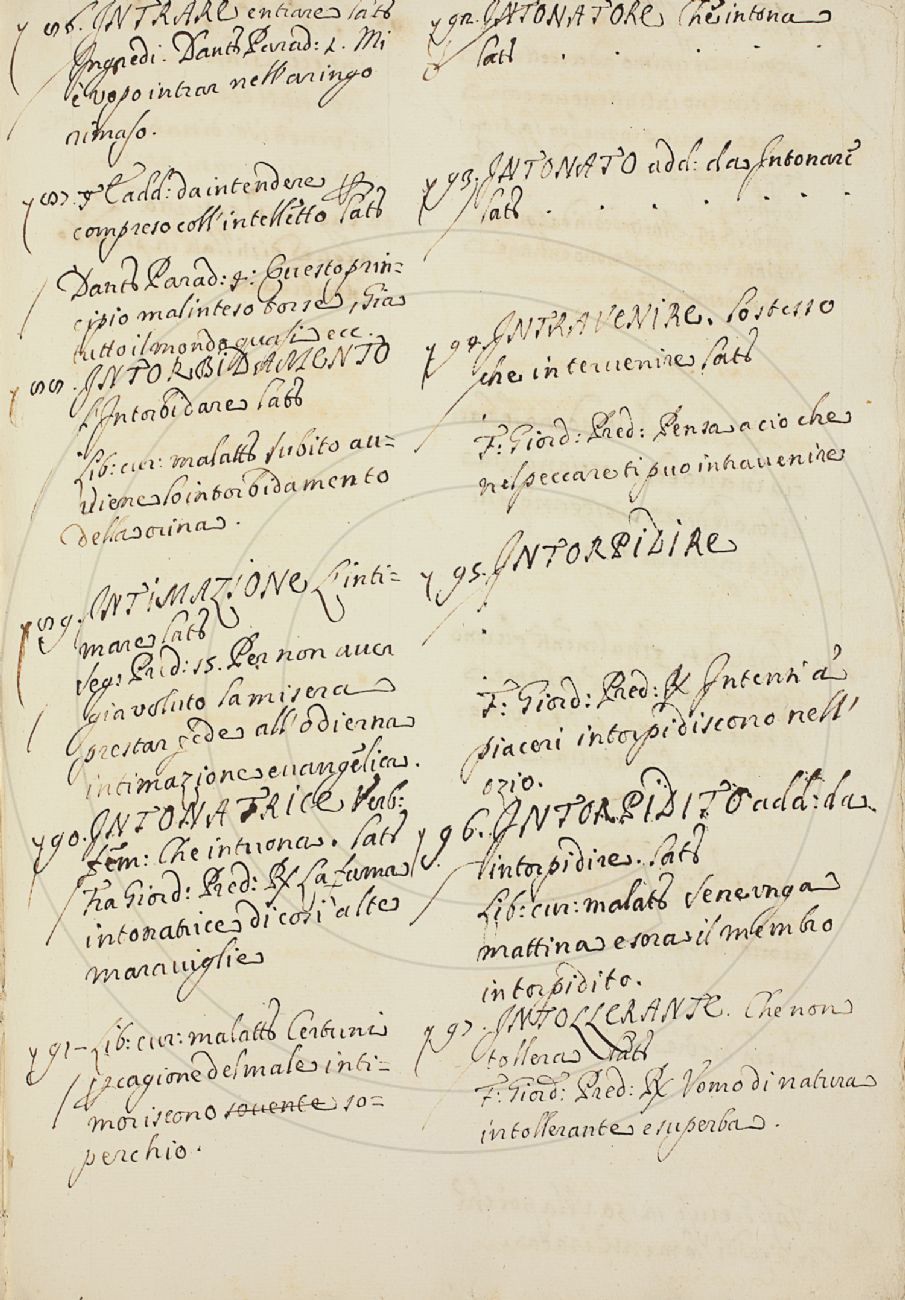 86. INTRARE entrare latᵉ
Ingredi. Dantᵉ Parad: 1. Mi
è vopo intrar nell'aringo
rimaso.
87. add: da intendere
compreso coll'intelletto latᵉ
Dantᵉ Parad: 4: Questo prin=
cipio mal inteso torse, Gia
tutto il mondo quasi ecc.
88. INTORBIDAMENTO
L'Intorbidare latᵉ
Lib: cur: malattᵉ subito au=
uiene lo intorbidamento
della orina.
89. INTIMAZIONE L'inti=
mare latᵉ
Seg: Pred: 15. Per non auer
gia voluto la misera
prestar fede all'odierna
intimazione euangelica.
90. INTONATRICE Verb:
fem: Che intuona. latᵉ
Fra Giord: Pred: R La fama
intonatrice di così alte
marauiglie
91 - Lib: cur: malattᵉ Certuni
p cagione del male inti=
moriscono souente so=
perchio.
92. INTONATORE Che intona
latᵉ . . . . . .
93. INTONATO add: da Intonare
latᵉ . . . . . . .
94. INTRAVENIRE. Lo stesso
che interuenire latᵉ
F: Giord: Pred: Pensa a cio che
nel peccare ti puo intrauenire
95. INTORPIDIRE
F: Giord: Pred: R Intenti à
piaceri intorpidiscono nell'
ozio.
96. INTORPIDITO add: da
intorpidire. latᵉ
Lib: cur: malattᵉ Sene vnga
mattina e sera il membro
intorpidito.
97. INTOLLERANTE. Che non
tollera latᵉ
F: Giord: Pred: R Vomo di natura
intollerante e superba.